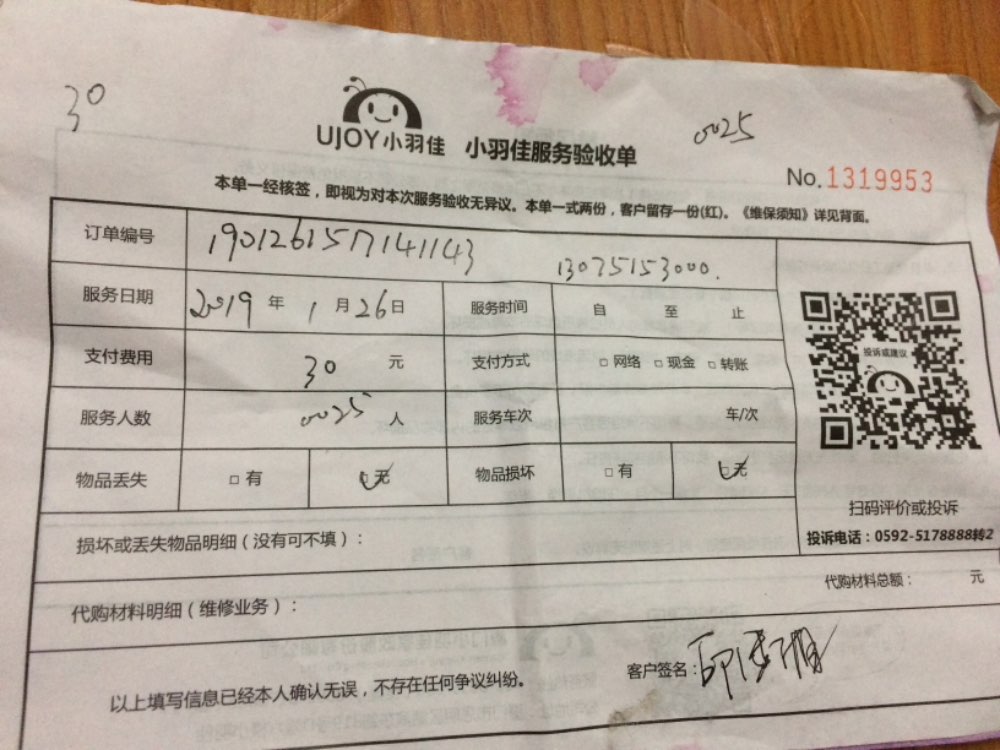 30
0025
UJOY小羽佳 小羽佳服务验收单
No.1319953
本单一经核签，即视为对本次服务验收无异议。本单一式两份，客户留存一份(红)。《维保须知》详见背面。
订单编号 190126157141143 13075153000.
服务日期 2019 年 1 月 26 日 服务时间 自 至 止
支付费用 30 元 支付方式 □ 网络 □ 现金 □ 转账
服务人数 0025 人 服务车次 车/次
物品丢失 □ 有 □ 无 物品损坏 □ 有 □ 无
投诉或建议
扫码评价或投诉
投诉电话：0592-5178888转2
损坏或丢失物品明细（没有可不填）：
代购材料明细（维修业务）： 代购材料总额： 元
以上填写信息已经本人确认无误，不存在任何争议纠纷。 客户签名：